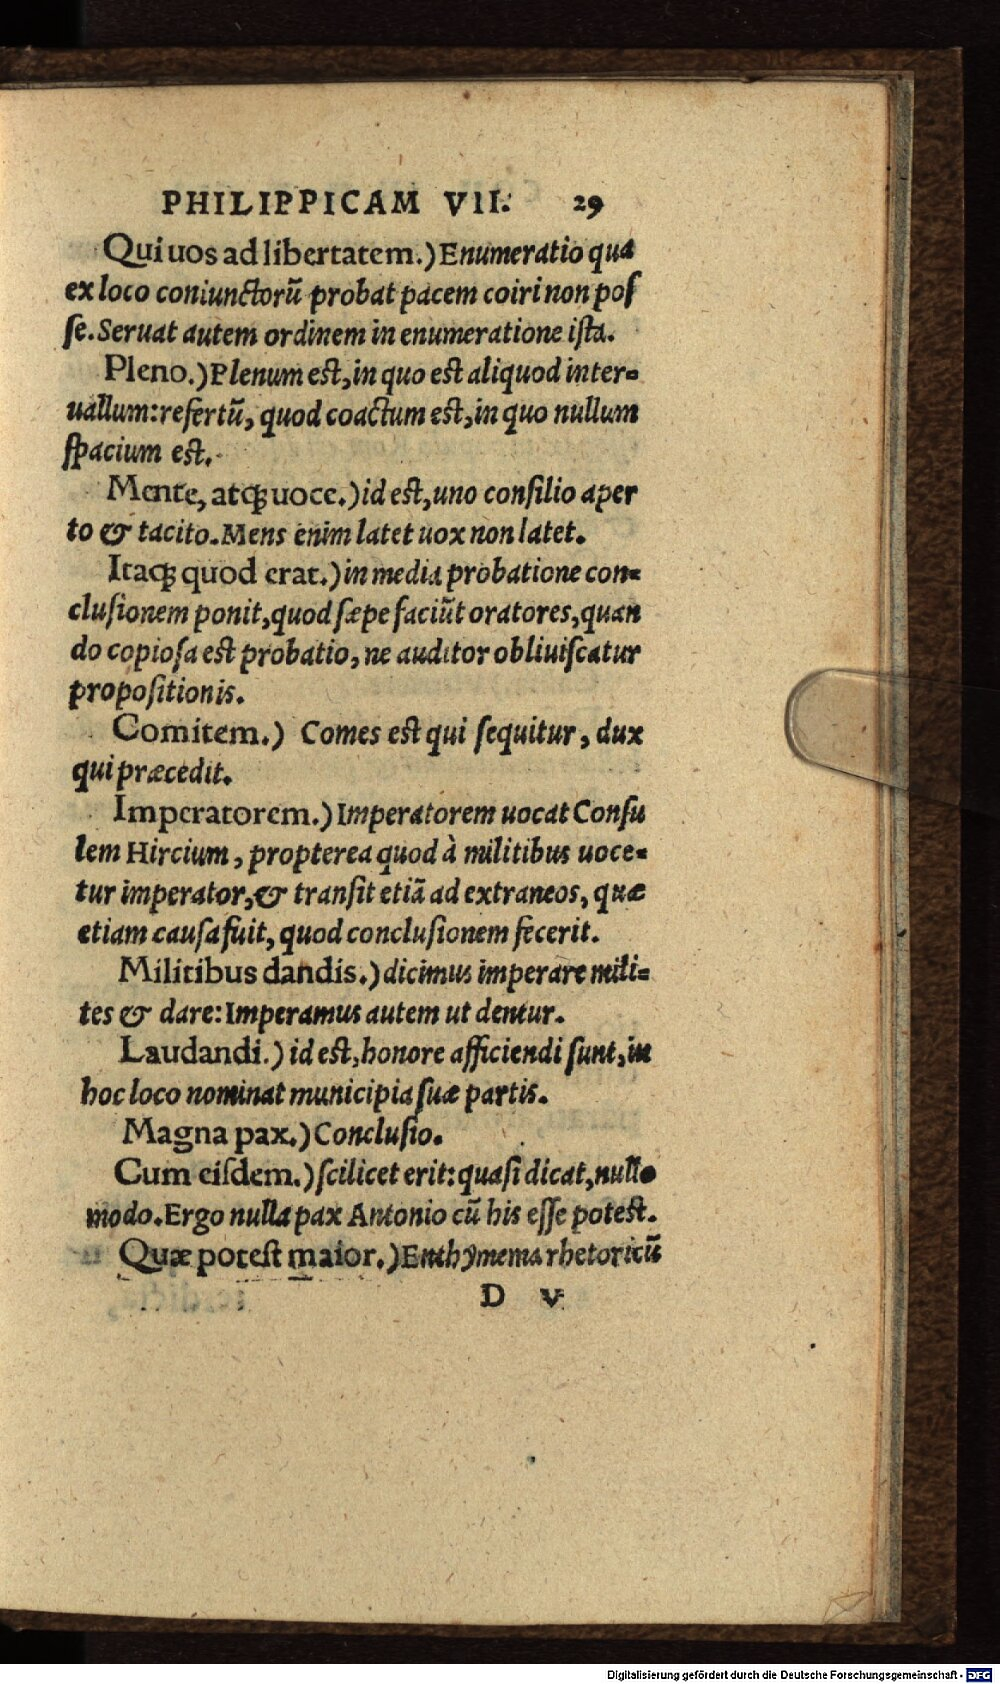 PHILIPPICAM VII. 29
Qui uos ad libertatem.) Enumeratio qua
ex loco coniunctorũ probat pacem coiri non poſ
ſe. Seruat autem ordinem in enumeratione iſta.
Pleno.) Plenum est, in quo est aliquod inter-
uallum: refertũ, quod coactum est, in quo nullum
ſpacium est.
Mente, atqꝫ uoce.) id est, uno conſilio aper
to & tacito. Mens enim latet uox non latet.
Itaqꝫ quod erat.) in media probatione con-
cluſionem ponit, quod ſæpe faciũt oratores, quan
do copioſa est probatio, ne auditor obliuiſcatur
propoſitionis.
Comitem.) Comes est qui ſequitur, dux
qui præcedit.
Imperatorem.) Imperatorem uocat Conſu
lem Hircium, propterea quod à militibus uoce-
tur imperator, & tranſit etiã ad extraneos, quæ
etiam cauſa fuit, quod concluſionem fecerit.
Militibus dandis.) dicimus imperare mili-
tes & dare: Imperamus autem ut dentur.
Laudandi.) id est, honore afficiendi ſunt, in
hoc loco nominat municipia ſuæ partis.
Magna pax.) Concluſio.
Cum eiſdem.) ſcilicet erit: quaſi dicat, nullo
modo. Ergo nulla pax Antonio cũ his eſſe potest.
Quæ poteſt maior.) Enthymema rhetoricũ
D v
Digitalisierung gefördert durch die Deutsche Forschungsgemeinschaft - DFG